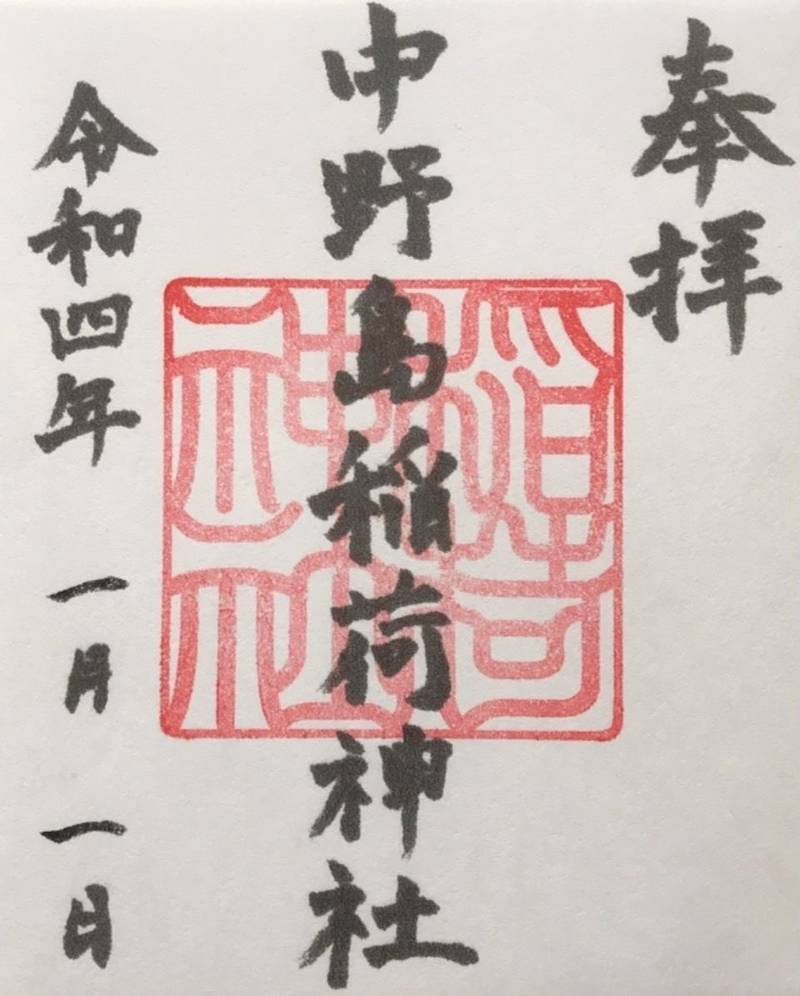 奉拝
中野島稲荷神社
令和四年 一月 一日